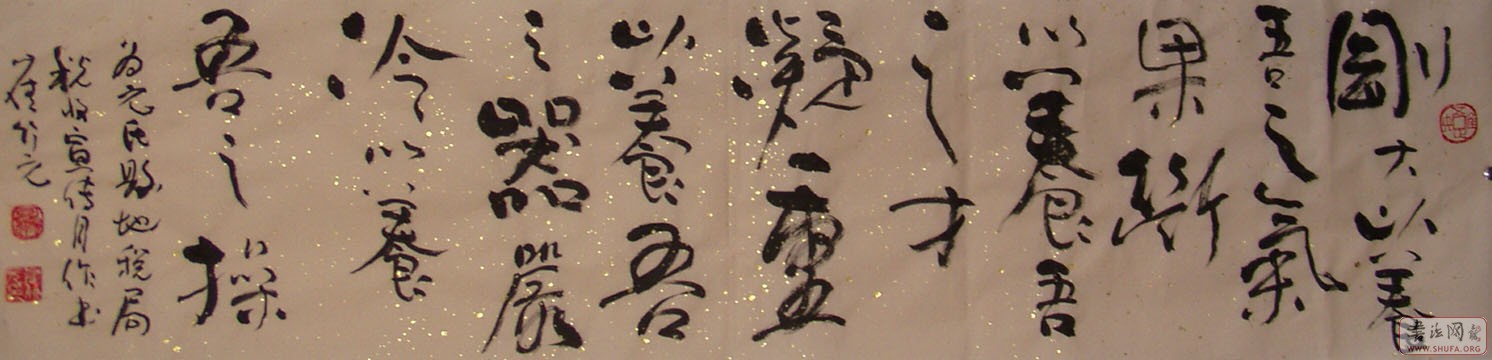 剛大以養
吾之氣
果斷
以養吾
之才
凝重
以養吾
之器嚴
冷以養
吾之操
为元氏县地税局
税收宣传月作书
書法网
WWW.SHUFA.ORG